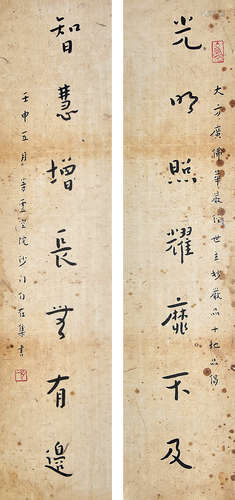 大方廣佛華嚴經世主妙嚴品十地品偈
光明照耀靡不及
智慧增長無有邊
壬申五月
沙門
集書